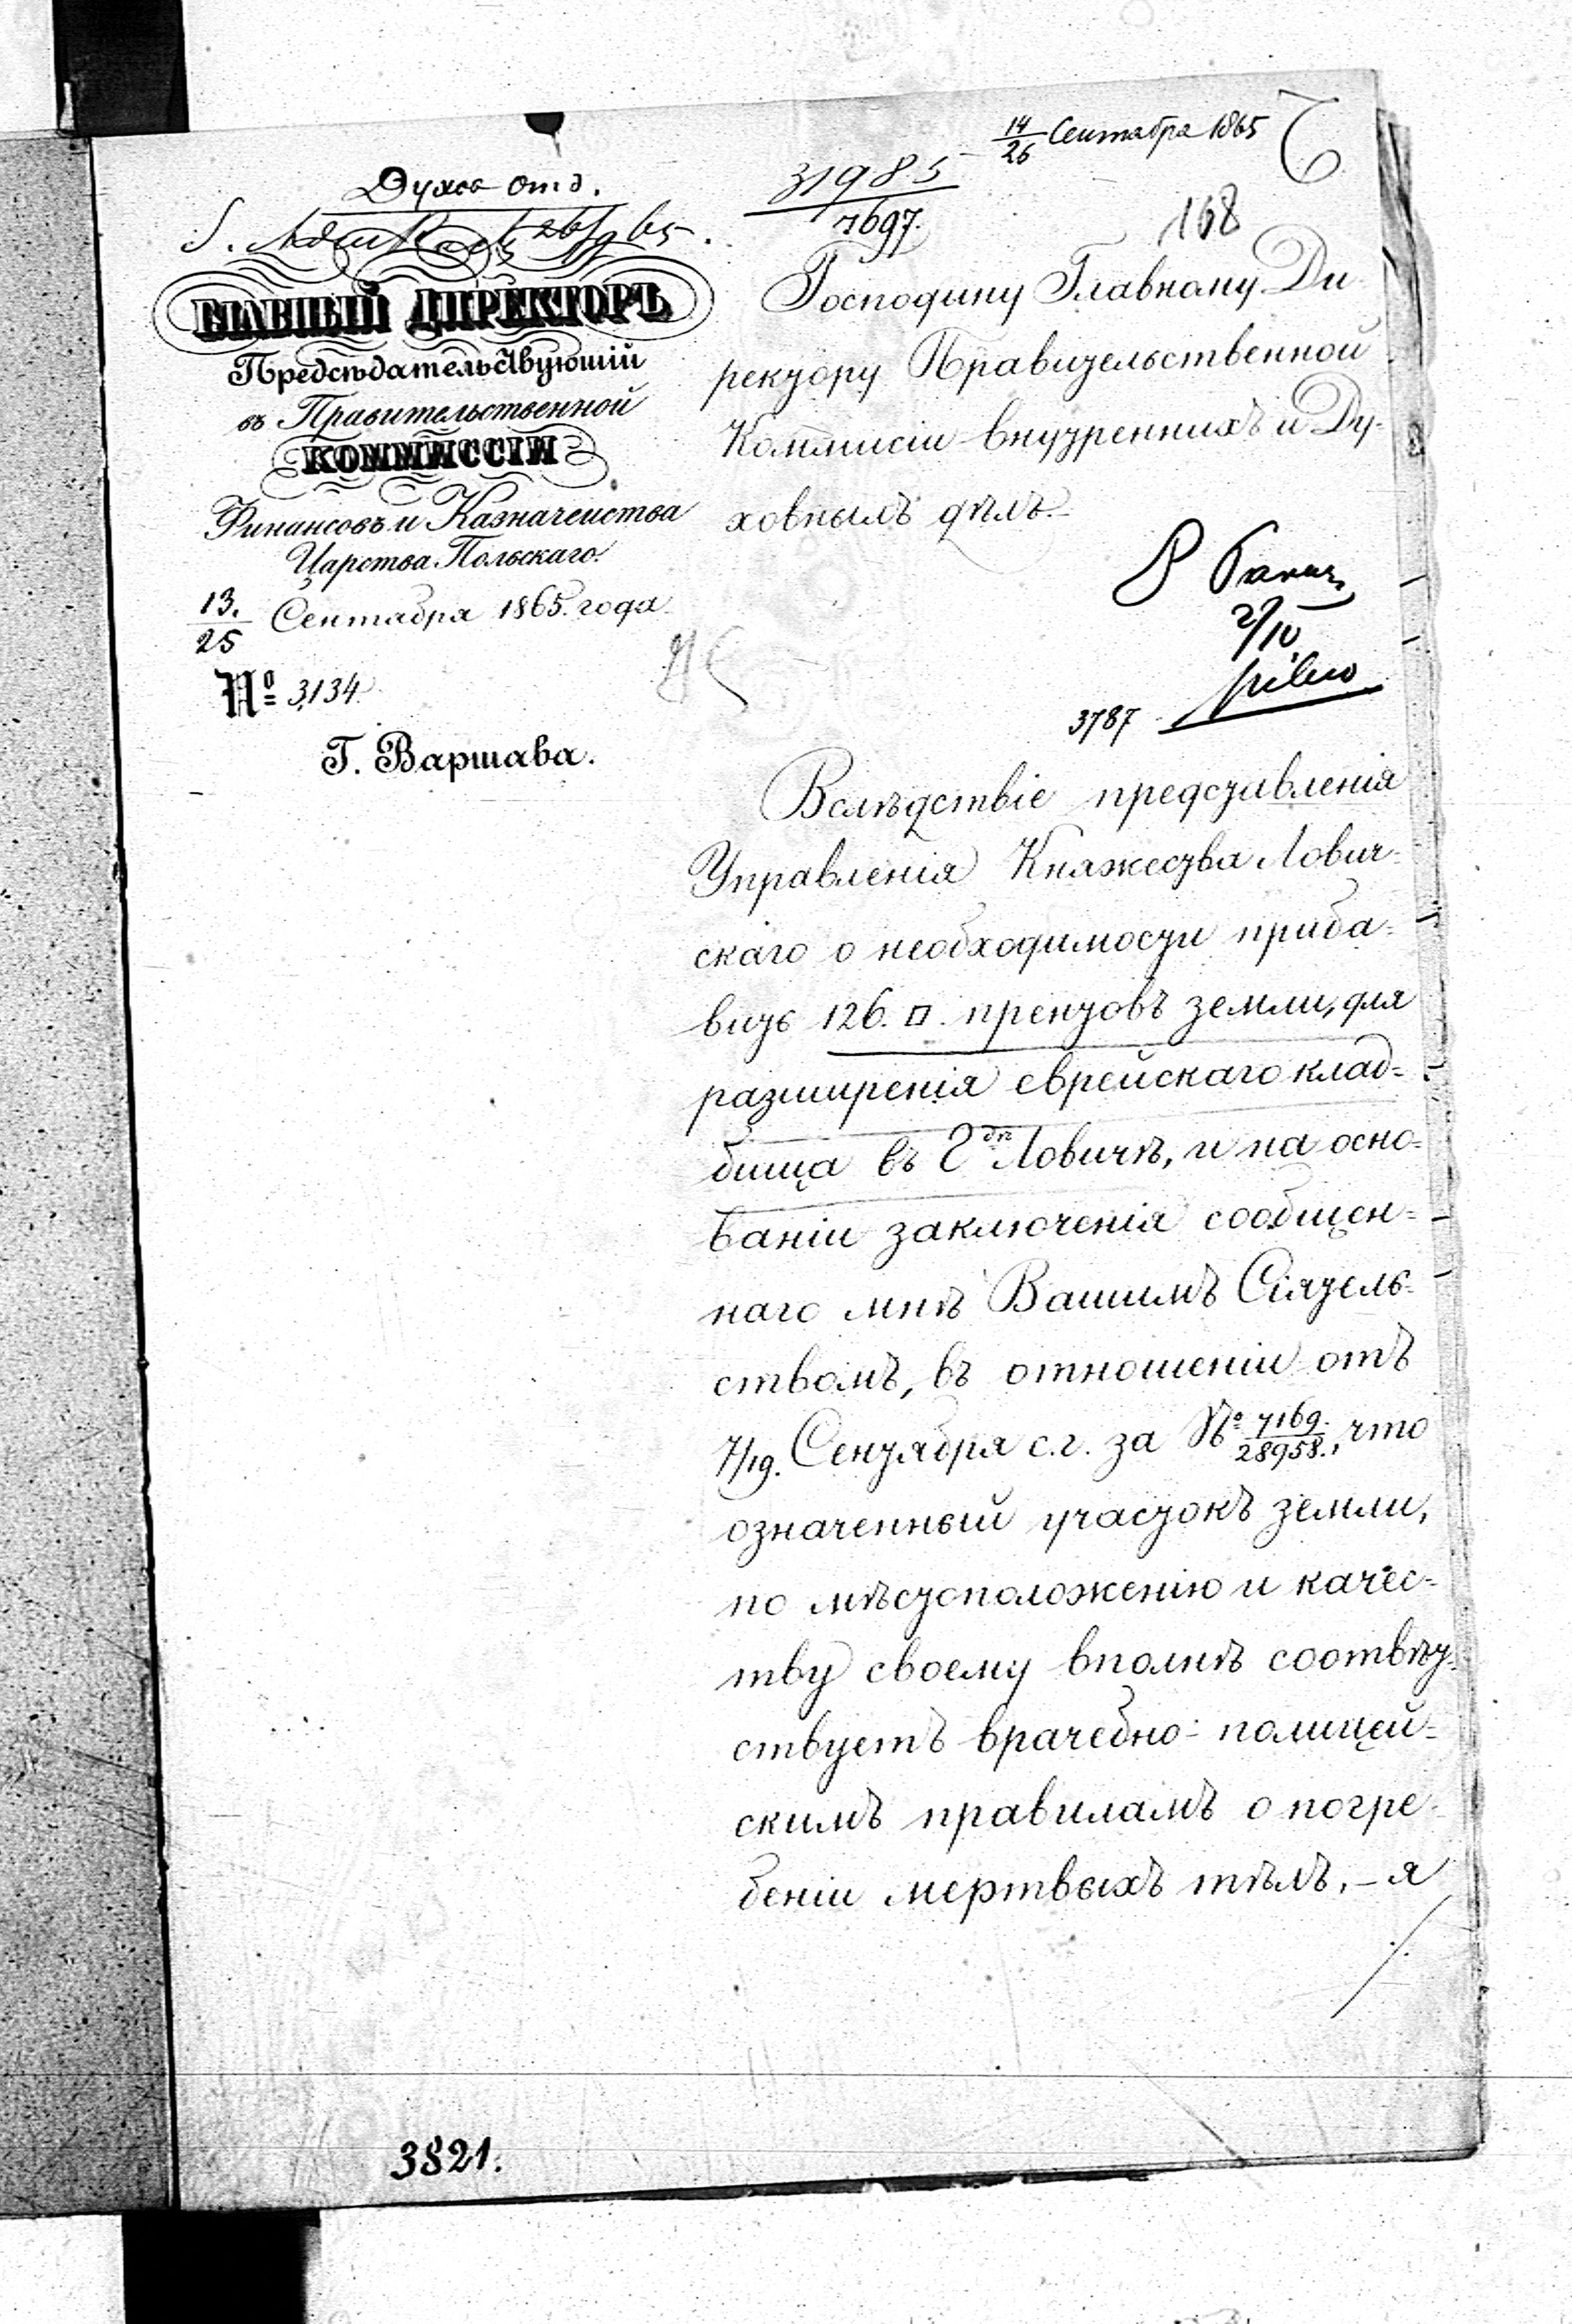 14/26 Сентября 1865
31985
7697.
168
Духов отд.
26/9 65.
ГЛАВНЫЙ ДИРЕКТОРЪ
Предсѣдательствующій
въ Правительственной
КОММИССІИ
Финансовъ и Казначейства
Царства Польскаго.
13./25 Сентября 1865. года
№ 3134.
Г. Варшава.
Господину Главному Ди-
ректору Правительственной
Коммисіи внутреннихъ и Ду-
ховнымъ дѣлъ.
2/10
pilno
3787
Вслѣдствіе представленія
Управленія Княжества Лович-
скаго о необходимости приба-
вить 126. □. прентовъ земли, для
разширенія еврейскаго клад-
бища въ Г дѣ Ловичѣ, и на осно-
ваніи заключенія сообщен-
наго мнѣ Вашимъ Сіятель-
ствомъ, въ отношеніи отъ
7/19. Сентября с.г. за № 7169./28958., что
означенный участокъ земли,
по мѣстоположенію и качес-
тву своему вполнѣ соотвѣт-
ствуетъ врачебно-полицей-
скимъ правиламъ о погре-
беніи мертвыхъ тѣлъ, – я
3821.